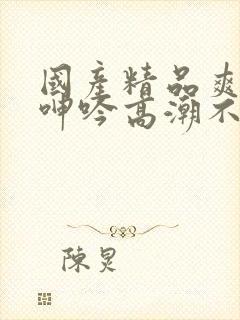 國產精品爽
呻吟高潮不
陳炅